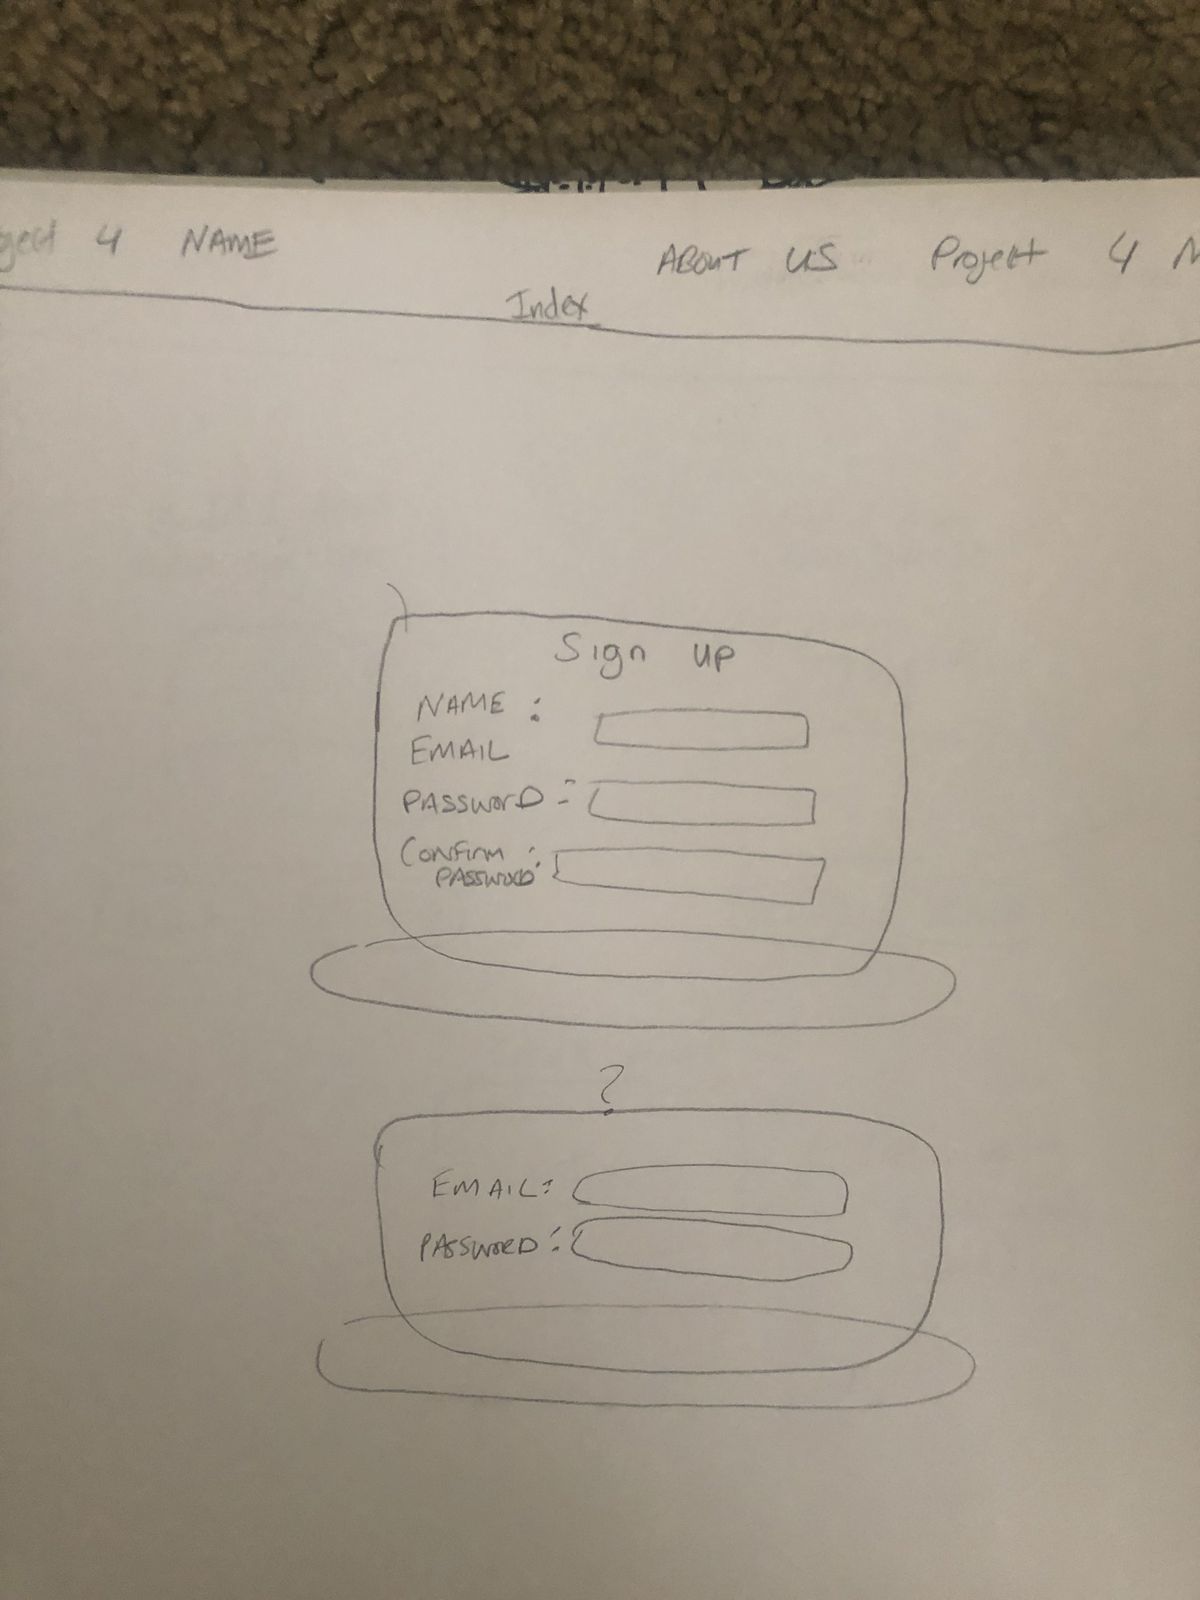 4 NAME ABOUT US Project 4
Index
Sign up
NAME :
EMAIL
PASSWORD :
CONFIRM :
PASSWORD
?
EMAIL:
PASSWORD :